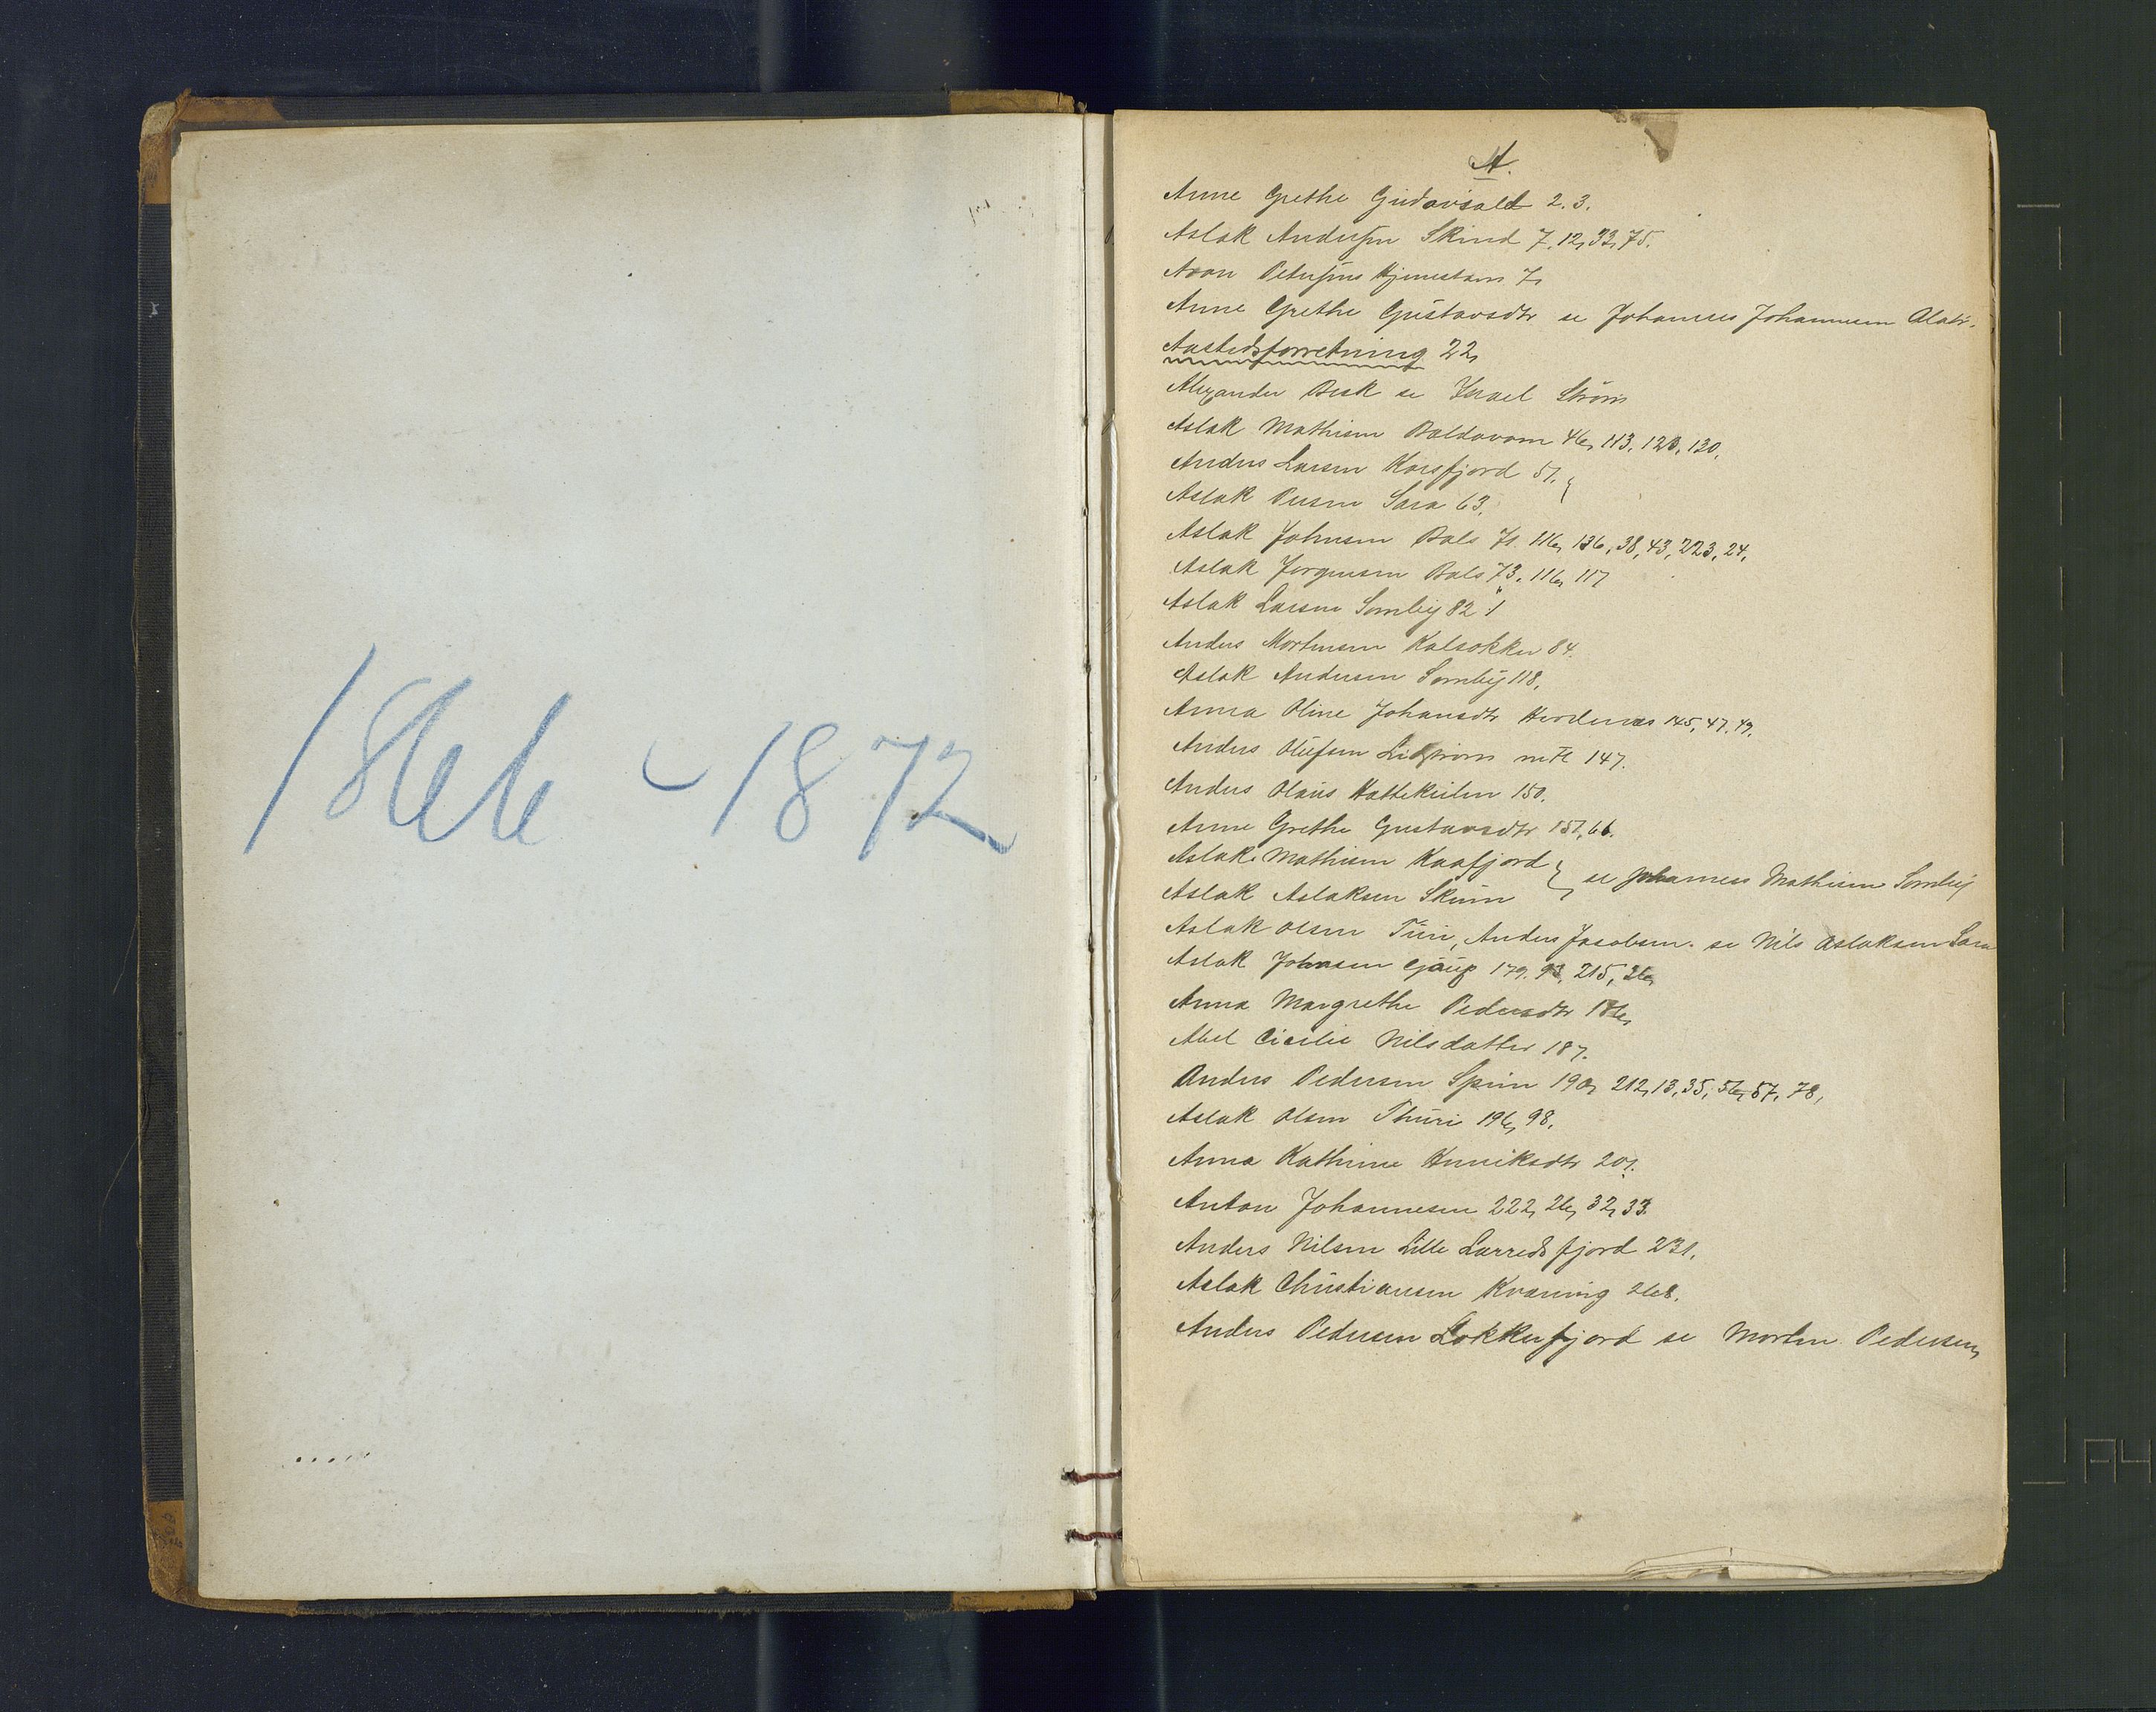 1866 - 1872
A.
Anne Grethe 2.3.
Aslak Andersen Skind 7, 12, 33, 75.
Aron Petersens 7,
Anne Grethe Gustavsdtr se Johannes Johannesen
Aastedsforretning 22,
Alexander Besk se Israel Strøm
Aslak Mathisen 46, 113, 128, 130,
Anders Larsen Korsfjord 51.
Aslak Persen Sara 63.
Aslak Johnsen Bals 71. 116, 136, 38, 43, 223, 24,
Aslak Jørgensen Bals 73, 116, 117
Aslak Larsen Somby 82
Anders Mortensen 84.
Aslak Andersen Somby 118.
Anna Oline Johansdtr 145, 47, 49,
Anders Olufsen 147.
Anders Olaus 150.
Anne Grethe Gustavsdtr 151, 66.
Aslak Mathisen Kaafjord
Aslak Aslaksen
se Johannes Mathisen Somby
Aslak Olsen Turi, Anders Jacobsen. se Nils Aslaksen Sara
Aslak Johnsen Gaup 179. 93, 215, 26,
Anna Margrethe Pedersdtr 186,
Abel Cicilie Nilsdatter 187.
Anders Pedersen Spein 190, 212, 13, 35, 56, 57, 78,
Aslak Olsen Thuri 196, 98.
Anna Kathrine Henriksdtr 201.
Anton Johannesen 222, 26, 32, 33.
Anders Nilsen Lille Lerredsfjord 231.
Aslak Christiansen Kvæning 268.
Anders Pedersen Lokkerfjord se Morten Pedersen,
A4